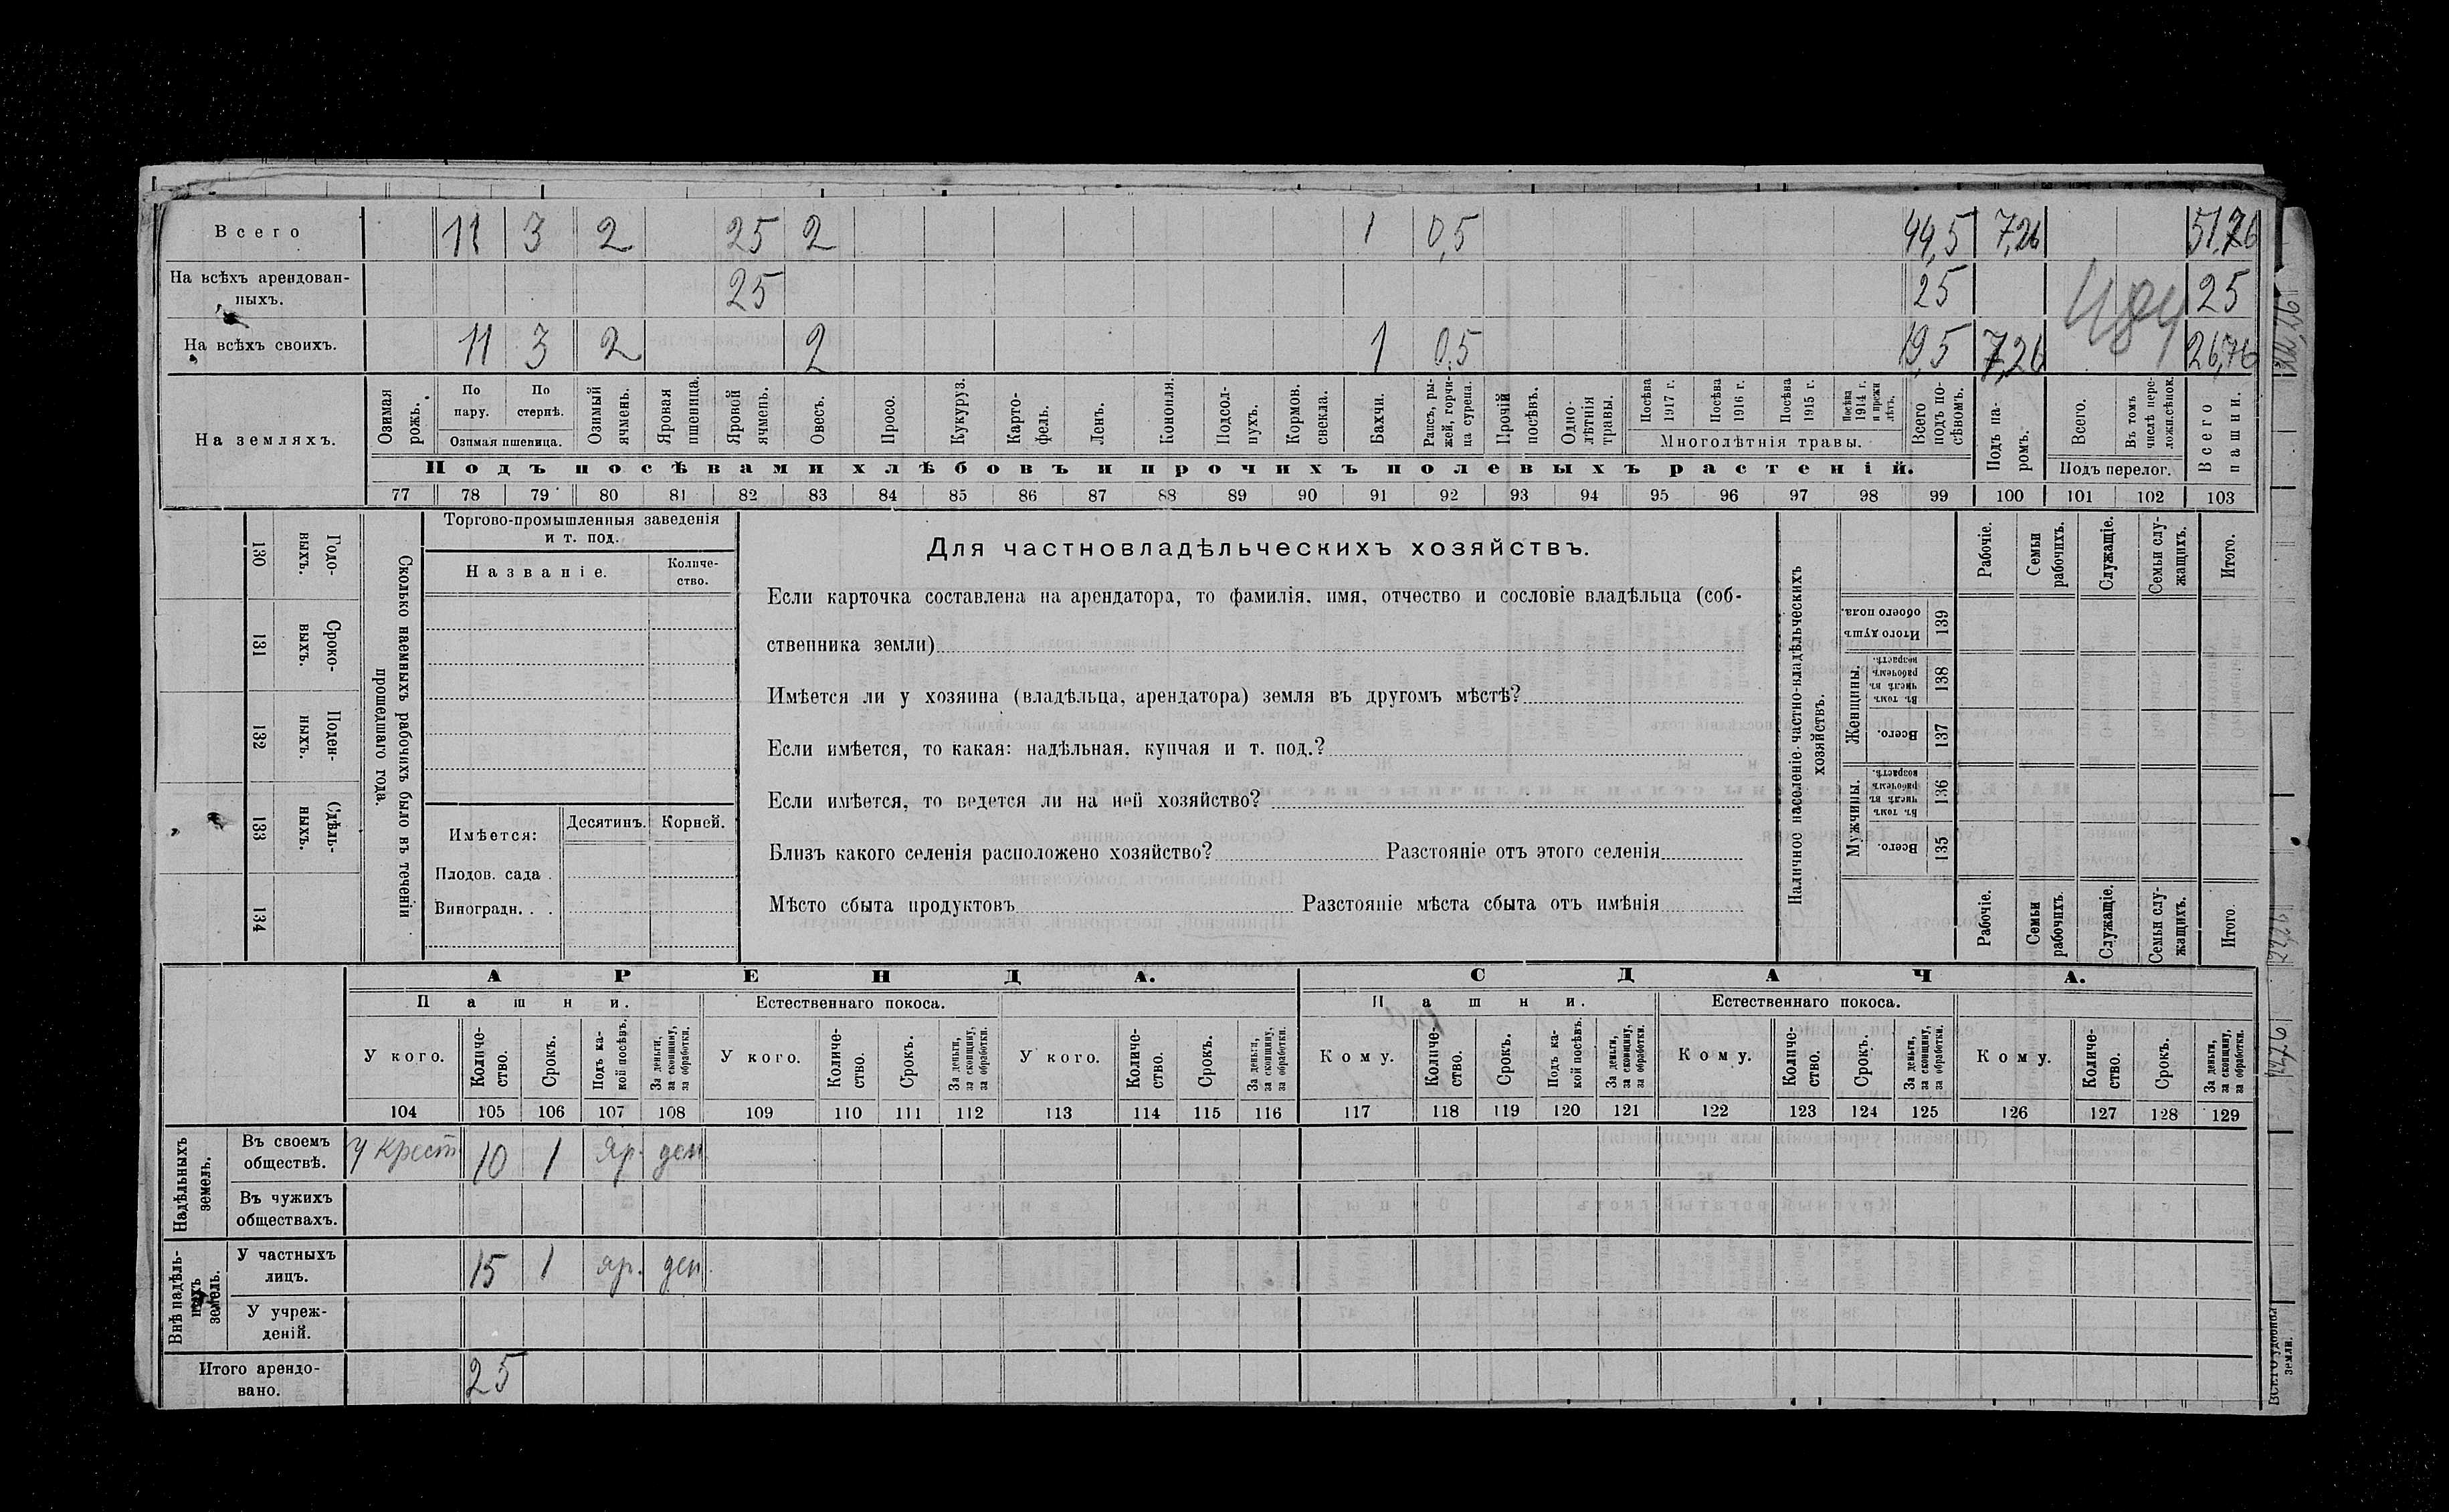 Всего 11 3 2 25 2 1 0,5 44,5 7,26 51,76
На всѣхъ арендован-
ныхъ. 25 25 25
На всѣхъ своихъ. 11 3 2 2 1 0.5 19,5 7,26 26,76
484
На земляхъ.
Озимая рожь.
По пару.
По стернѣ.
Озимая пшеница.
Озимый ячмень.
Яровая пшеница.
Яровой ячмень.
Овесъ.
Просо.
Кукуруз.
Карто-
фель.
Ленъ.
Конопля.
Подсол-
нухъ.
Кормов. свекла.
Бахчи.
Рапсъ, ры-
жей, горчи-
ца сурепа.
Прочій посѣвъ.
Одно-
лѣтнія травы.
Посѣва 1917 г.
Посѣва 1916 г.
Посѣва 1915 г.
Посѣва 1914 г. и прежн лѣтъ.
Многолѣтнія травы.
Всего подъ по-
сѣвомъ.
Подъ па-
ромъ.
Всего.
Въ томъ числѣ пере-
ложн.сѣнок.
Подъ перелог.
Всего пашни.
Подъ посѣвами хлѣбовъ и прочихъ полевыхъ растеній.
77 78 79 80 81 82 83 84 85 86 87 88 89 90 91 92 93 94 95 96 97 98 99 100 101 102 103
130 Годо-
выхъ.
131 Сроко-
выхъ.
132 Поден-
ныхъ.
133 Сдѣль-
ныхъ.
134
Сколько наемныхъ рабочихъ было въ теченіи
прошедшаго года.
Торгово-промышленныя заведенія
и т. под.
Названіе.
Количе-
ство.
Имѣется:
Десятинъ.
Корней.
Плодов. сада .
Виноградн. . .
Для частновладѣльческихъ хозяйствъ.
Если карточка составлена на арендатора, то фамилія, имя, отчество и сословіе владѣльца (соб-
ственника земли)
Имѣется ли у хозяина (владѣльца, арендатора) земля въ другомъ мѣстѣ?
Если имѣется, то какая: надѣльная, купчая и т. под.?
Если имѣется, то ведется ли на ней хозяйство?
Близъ какого селенія расположено хозяйство? Разстояніе отъ этого селенія
Мѣсто сбыта продуктовъ Разстояніе мѣста сбыта отъ имѣнія
Наличное населеніе частно-владѣльческихъ
хозяйствъ.
Рабочіе.
Семьи рабочихъ.
Служащіе.
Семьи слу-
жащихъ.
Итого.
Итого душъ обоего пола. 139
Женщины.
Въ томъ числѣ въ рабочемъ возрастѣ. 138
Всего. 137
Мужчины.
Въ томъ числѣ въ рабочемъ возрастѣ. 136
Всего. 135
Рабочіе.
Семьи рабочихъ.
Служащіе.
Семьи слу-
жащихъ.
Итого.
АРЕНДА. СДАЧА.
Пашни. Естественнаго покоса. Пашни. Естественнаго покоса.
У кого.
Количе-
ство.
Срокъ.
Подъ ка-
кой посѣвъ.
За деньги, за скопщину, за обработки.
У кого.
Количе-
ство.
Срокъ.
За деньги, за скопщину, за обработки.
У кого.
Количе-
ство.
Срокъ.
За деньги, за скопщину, за обработки.
Кому.
Количе-
ство.
Срокъ.
Подъ ка-
кой посѣвъ.
За деньги, за скопщину, за обработки.
Кому.
Количе-
ство.
Срокъ.
За деньги, за скопщину, за обработки.
Кому.
Количе-
ство.
Срокъ.
За деньги, за скопщину, за обработки.
104 105 106 107 108 109 110 111 112 113 114 115 116 117 118 119 120 121 122 123 124 125 126 127 128 129
Надѣльныхъ земель.
Въ своемъ
обществѣ. У крест 10 1 яр. ден
Въ чужихъ
обществахъ.
Внѣ надѣль-
ныхъ земель.
У частныхъ
лицъ. 15 1 яр. ден.
У учреж-
деній.
Итого арендо-
вано. 25
Всего удобной
земли.